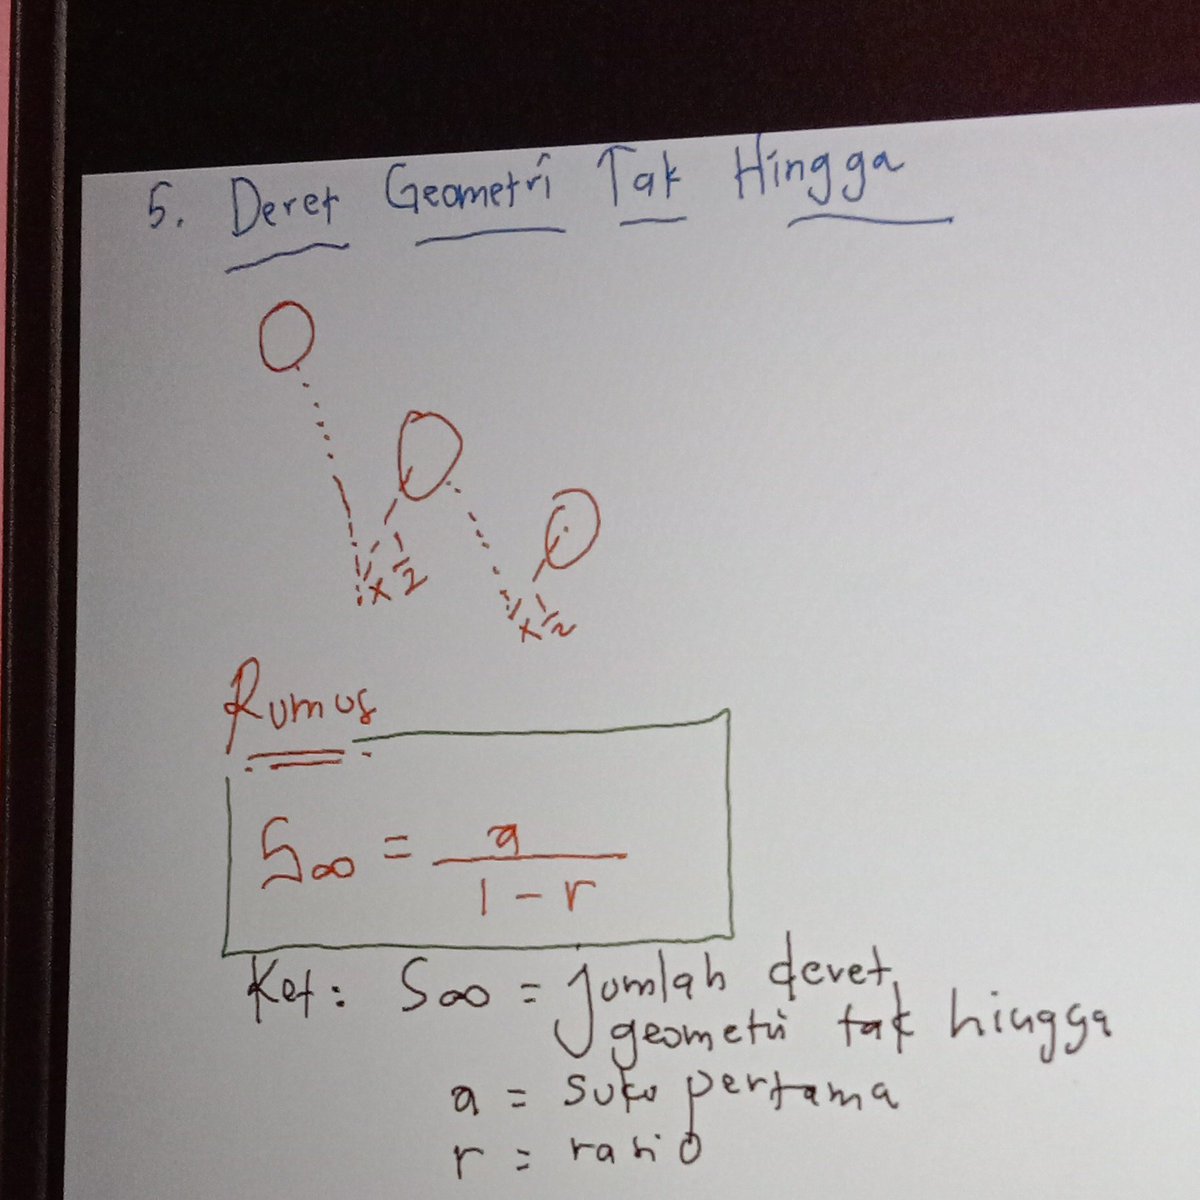 5. Deret Geometri Tak Hingga
x 1/2
x 1/2
Rumus
S∞ = a / 1 - r
Ket: S∞ = Jumlah deret
geometri tak hingga
a = suku pertama
r = rasio